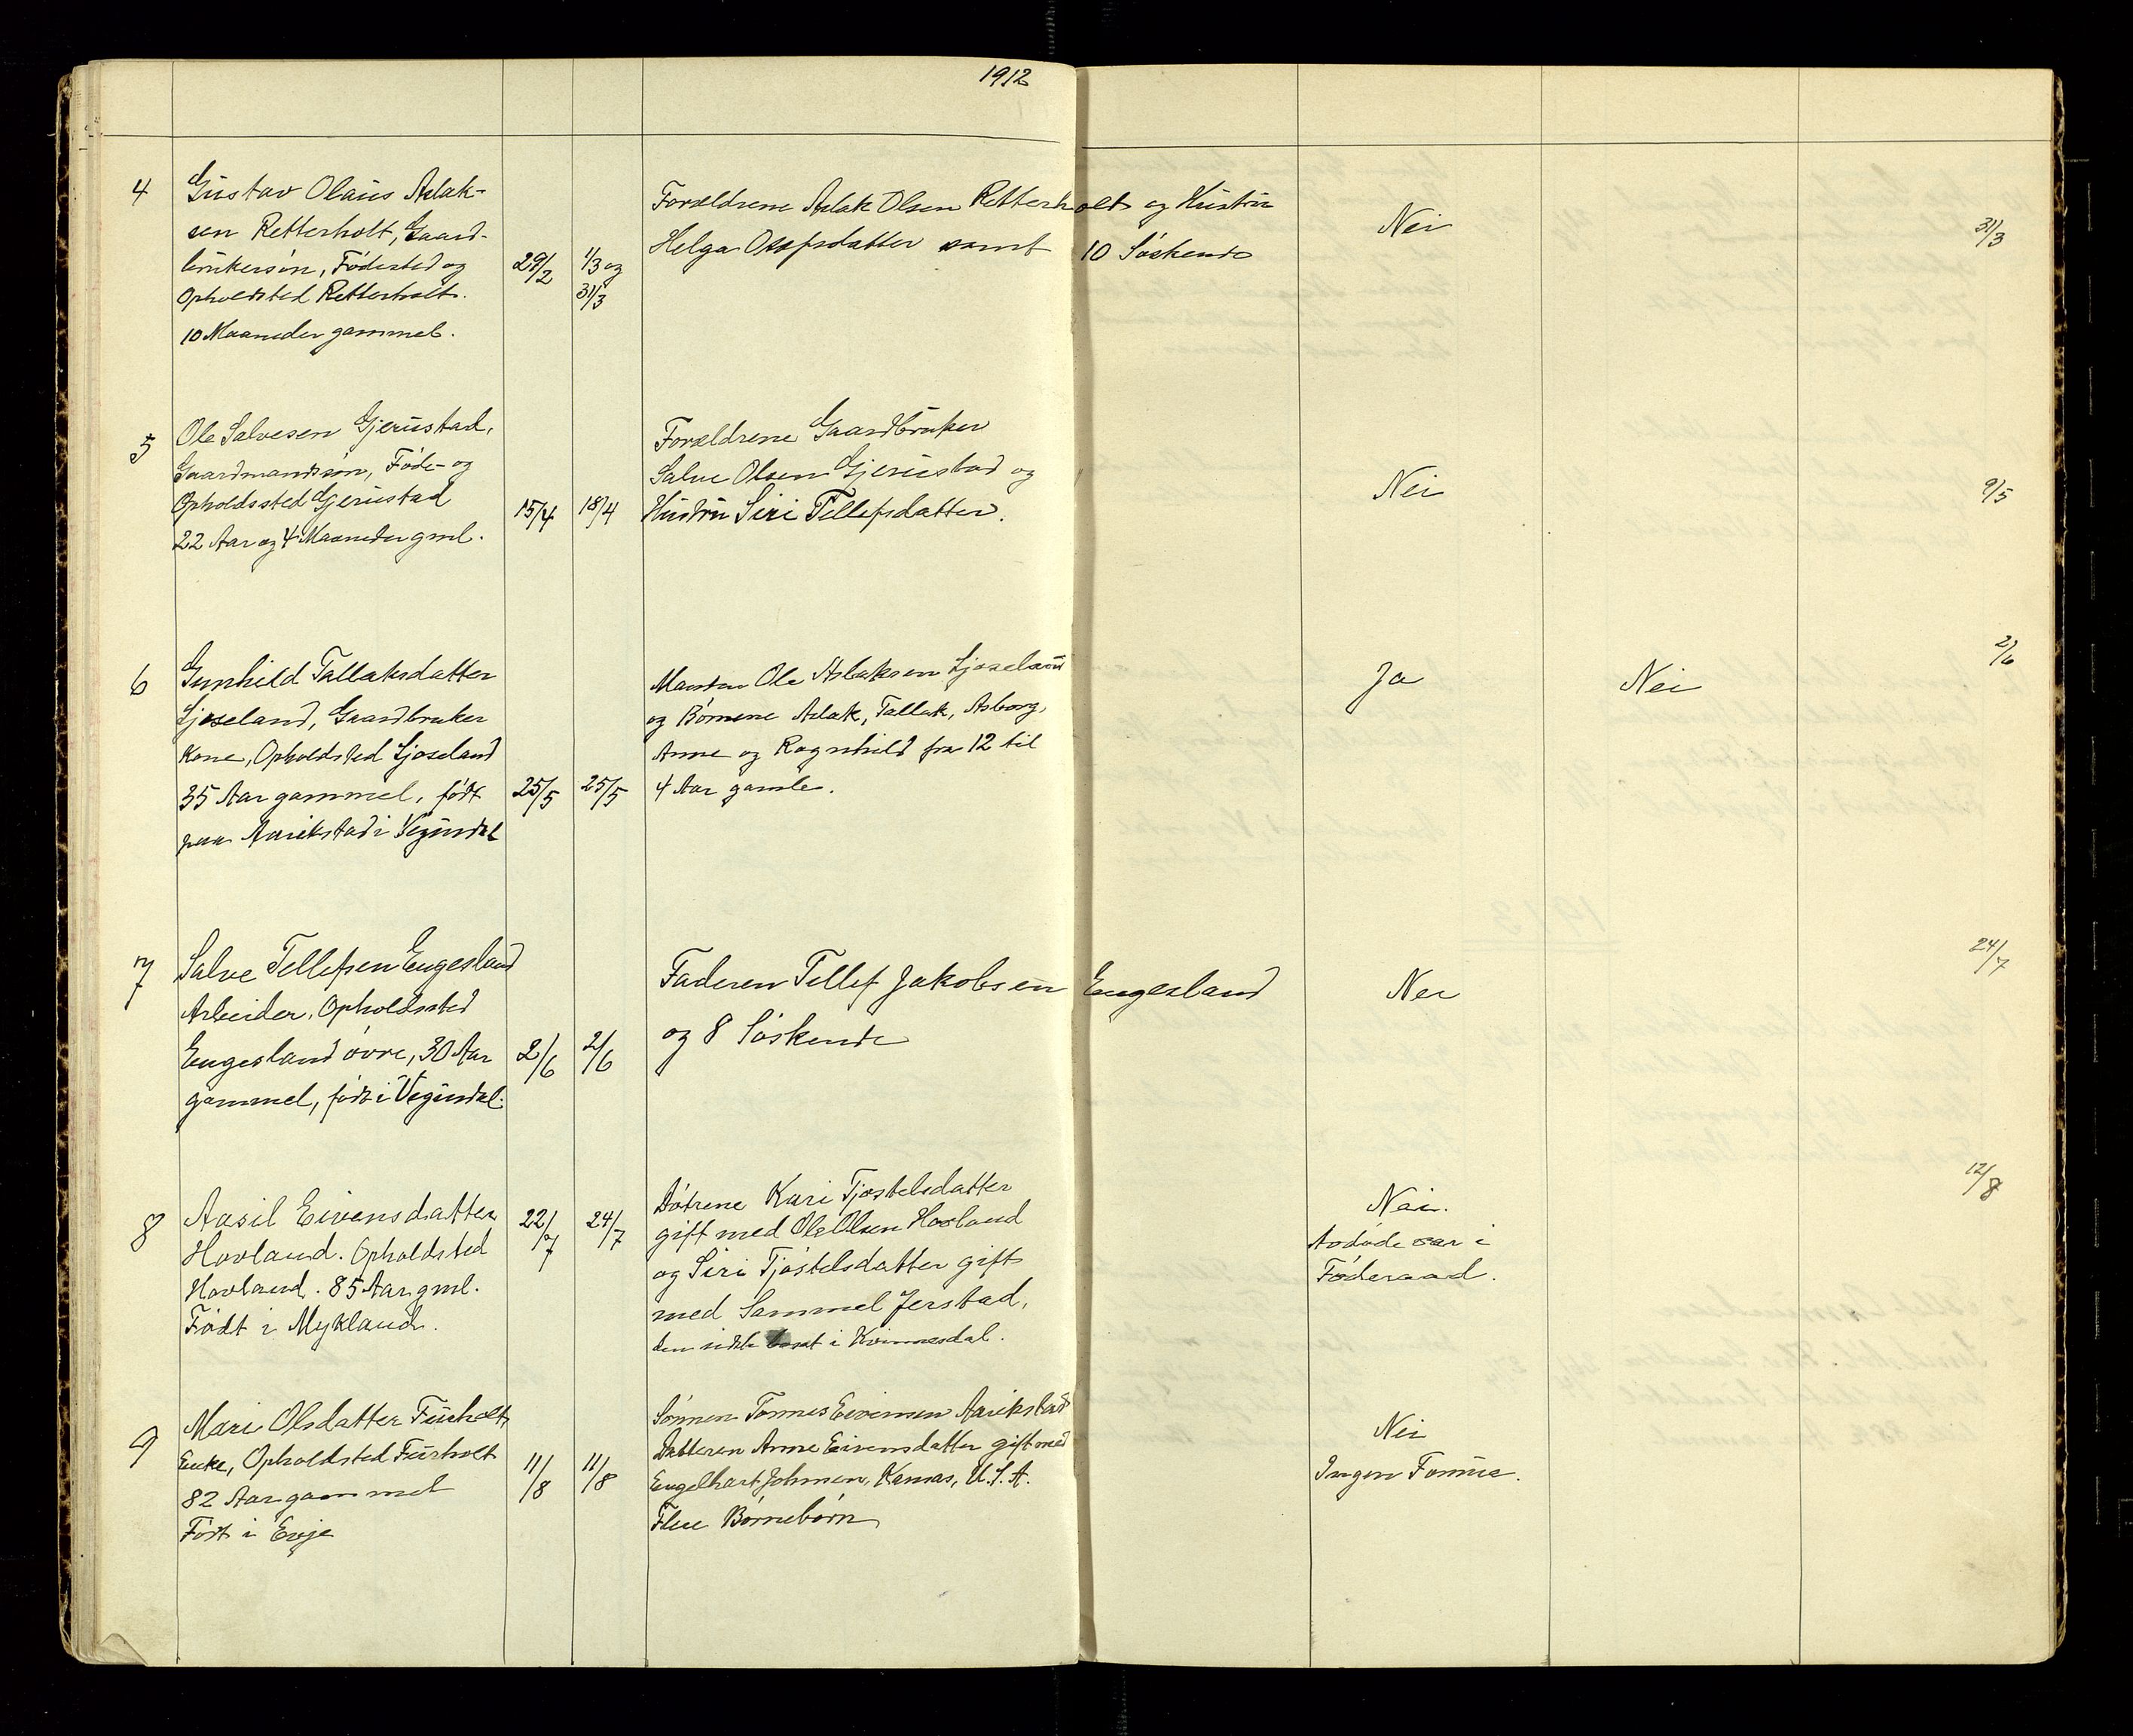 1912
4
Gustav Olaus Aslak-
sen Retterholt, Gaard-
brukersøn, Fødested og
Opholdsted Retterholt.
10 Maaneder gammel.
29/2
1/3 og
31/3
Forældrene Aslak Olsen Retterholt og Hustru
Helga Osufsdatter samt 10 Søskende
Nei
31/3
5
Ole Salvesen Gjerustad,
Gaardmandssøn, Føde- og
Opholdssted Gjerustad
22 Aar og 4 Maaneder gml.
15/4
18/4
Forældrene Gaardbruker
Salve Olsen Gjerustad og
Hustru Siri Tellefsdatter.
Nei
9/5
6
Gunhild Tallaksdatter
Ljoseland, Gaardbruker
Kone, Opholdsted Ljoseland
35 Aar gammel, født
paa Aarikstad i Vegusdal
25/5
25/5
Manden Ole Aslaksen Ljoseland
og Børnene Aslak, Tallak, Asborg,
Anne og Ragnhild fra 12 til
4 Aar gamle.
Ja
Nei
2/6
7
Salve Tellefsen Engesland
Arbeider, Opholdssted
Engesland øvre, 30 Aar
gammel, født i Vegusdal.
2/6
2/6
Faderen Tellef Jakobsen Engesland
og 8 Søskende
Nei
24/7
8
Aasil Eivensdatter
Hovland. Opholdsted
Hovland. 85 Aar gml.
Født i Mykland.
22/7
24/7
Døtrene Kari Tjøstelsdatter
gift med Ole Olsen Hovland
og Siri Tjøstelsdatter gift
med Sammel Jerstad,
den sidste bosat i Kvinnesdal.
Nei.
Avdøde var i
Føderaad.
12/8
9
Mari Olsdatter Furholt
Enke, Opholdsted Furholt
82 Aar gammel
Født i Evje
11/8
11/8
Sønnen Tønnes Eivensen Aarikstad
Datteren Anne Eivensdatter gift med
Engelhart Johnsen, Kansas, U.S.A.
Flere Børnebørn
Nei
Ingen Formue.